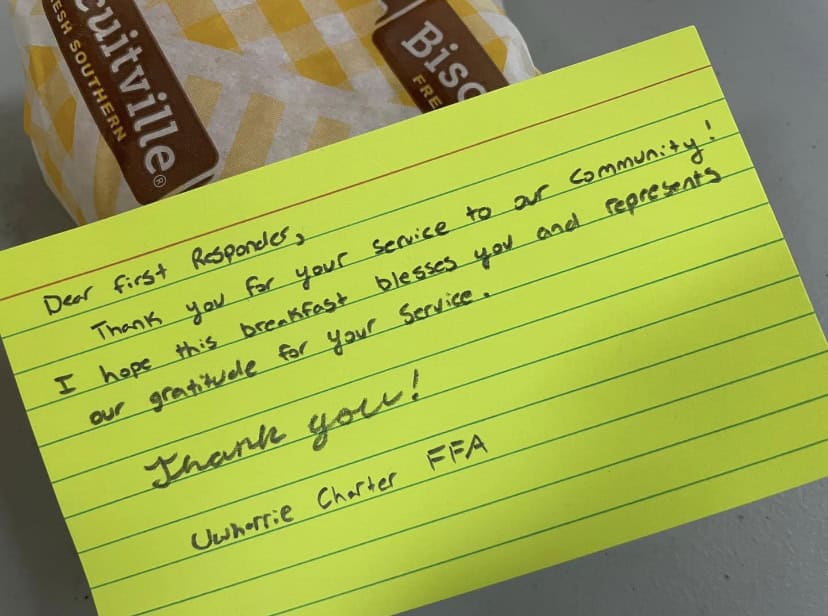 cuitville®
ESH SOUTHERN
Bisc
FRE
Dear First Responder,
Thank you for your service to our community!
I hope this breakfast blesses you and represents
our gratitude for your service.
Thank you!
Uwharrie Charter FFA